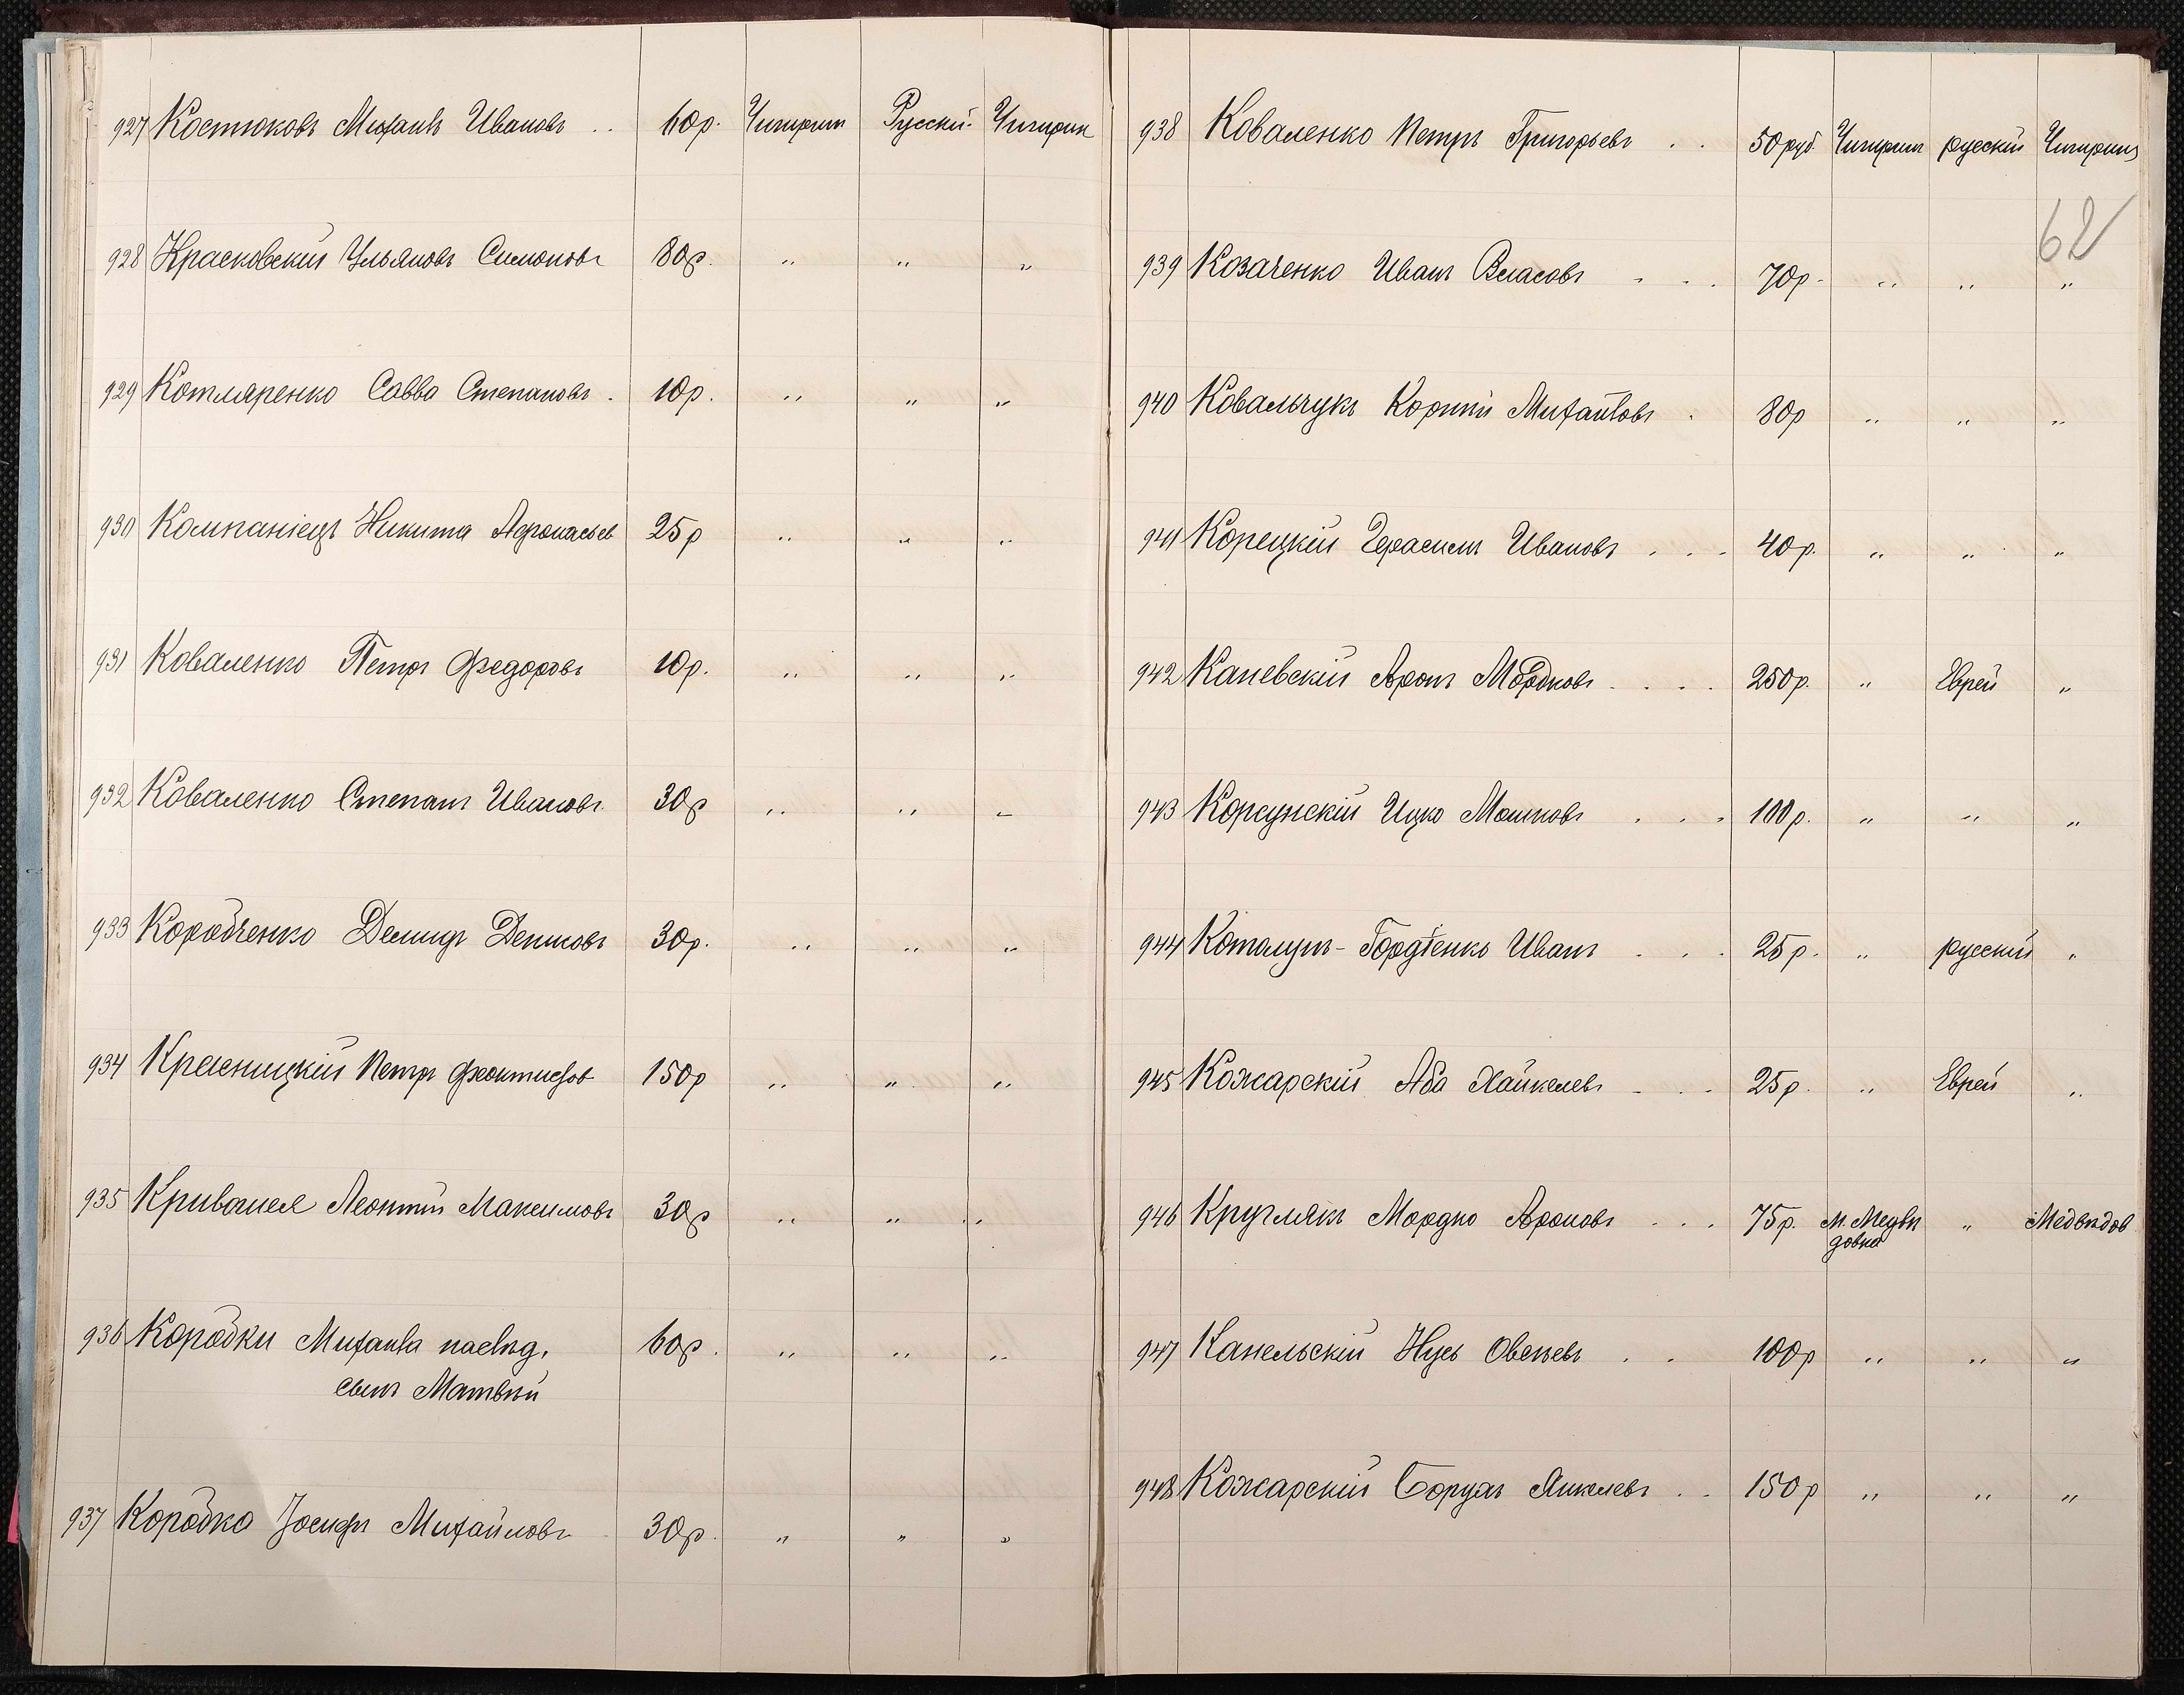 927 Костюковъ Михаилъ Ивановъ . . 60р. Чигирин Русскій Чигирин
928 Красковскій Ульяновъ Симоновъ 80р. " " "
929 Котляренко Савва Степановъ . 10р. " " "
930 Компаніецъ Никита Афонасьев 25р " " "
931 Коваленко Петръ Федоровъ 10р. " " "
932 Коваленко Степанъ Ивановъ 30р " " "
933 Коробченко Демидъ Денисовъ 30р. " " "
934 Красницкій Петръ Феоктистов 150р " " "
935 Леонтій Максимовъ 30р " " "
936 Коробки Михаила наслѣд. 60р. " " "
сынъ Матвѣй
937 Коробко Іосифъ Михайловъ 30р. " " "
938 Коваленко Петръ Григорьевъ . . 50 руб. Чигирин русскій Чигирин
62
939 Козаченко Иванъ Власовъ . . . 70р. " " "
940 Ковальчукъ Корній Михайловъ . 80р " " "
941 Корецкій Герасимъ Ивановъ . . . 40р. " " "
942 Каневскій Аронъ Мордковъ . . . . 250р. " Еврей "
943 Корсунскій Ицко Мошковъ . . . 100р. " " "
944 Гордіенко Иванъ . . . 25р. " русскій "
945 Кожарскій Аба Хайкелевъ . . . 25р. " Еврей "
946 Круглякъ Мордко Ароновъ . . . 75р. м. Медвѣ " Медвѣдов
довка
947 Канельскій Нусь Овсеевъ . . 100р " " "
948 Кожарскій Борухъ Янкелевъ . . 150р " " "